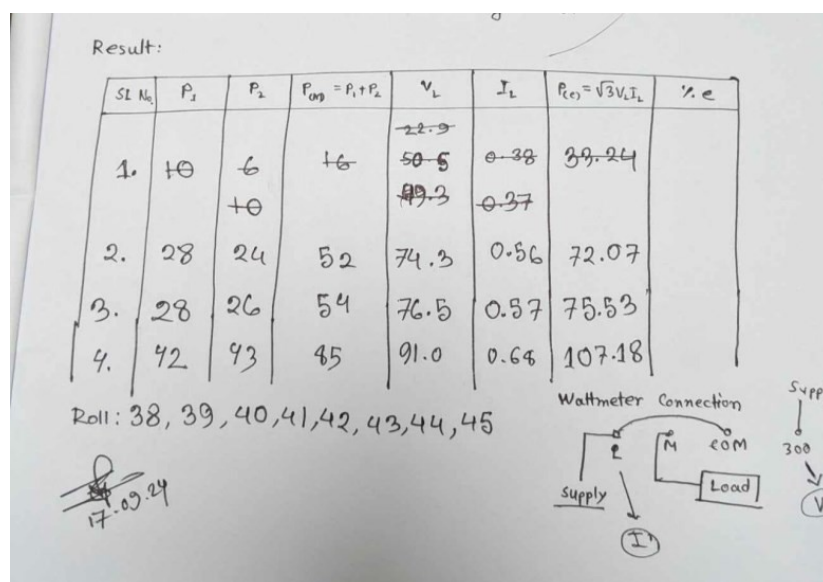 Result:
SL No. P₁ P₂ P(m) = P₁+P₂ V_L I_L P(c) = √3V_LI_L % e
22.9
1. 10 6 16 50.5 0.38 33.24
10 49.3 0.37
2. 28 24 52 74.3 0.56 72.07
3. 28 26 54 76.5 0.57 75.53
4. 42 43 85 91.0 0.68 107.18
Roll: 38, 39, 40, 41, 42, 43, 44, 45
17.09.24
Wattmeter Connection
L M COM
Supply Load
I
Supp
300
V